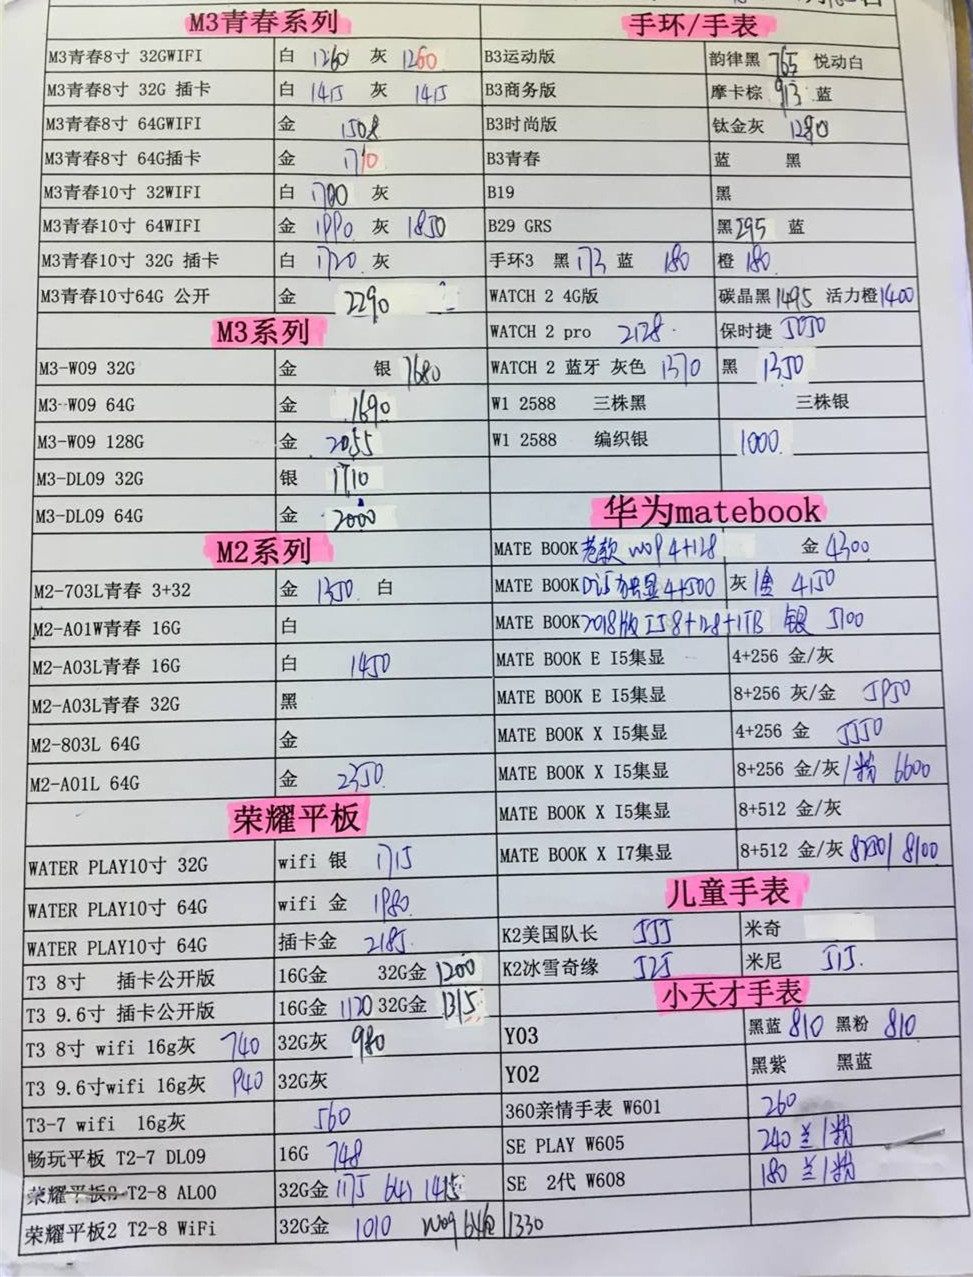 M3青春系列
M3青春8寸 32GWIFI 白 1260 灰 1260
M3青春8寸 32G 插卡 白 1415 灰 1415
M3青春8寸 64GWIFI 金 1508
M3青春8寸 64G插卡 金 1710
M3青春10寸 32WIFI 白 1700 灰
M3青春10寸 64WIFI 金 1990 灰 1850
M3青春10寸 32G 插卡 白 1720 灰
M3青春10寸64G 公开 金 2290
M3系列
M3-W09 32G 金 银 1680
M3-W09 64G 金 1690
M3-W09 128G 金 2055
M3-DL09 32G 银 1710
M3-DL09 64G 金 2000
M2系列
M2-703L青春 3+32 金 1350 白
M2-A01W青春 16G 白
M2-A03L青春 16G 白 1450
M2-A03L青春 32G 黑
M2-803L 64G 金
M2-A01L 64G 金 2350
荣耀平板
WATER PLAY10寸 32G wifi 银 1715
WATER PLAY10寸 64G wifi 金 1980
WATER PLAY10寸 64G 插卡金 2185
T3 8寸 插卡公开版 16G金 32G金 1200
T3 9.6寸 插卡公开版 16G金 1120 32G金 1315
T3 8寸 wifi 16g灰 740 32G灰 980
T3 9.6寸wifi 16g灰 940 32G灰
T3-7 wifi 16g灰 560
畅玩平板 T2-7 DL09 16G 748
荣耀平板2 T2-8 AL00 32G金 1175 64G 1415
荣耀平板2 T2-8 WiFi 32G金 1010 W09 64G 1330
手环/手表
B3运动版 韵律黑 765 悦动白
B3商务版 摩卡棕 913 蓝
B3时尚版 钛金灰 1280
B3青春 蓝 黑
B19 黑
B29 GRS 黑 295 蓝
手环3 黑 173 蓝 180 橙 180
WATCH 2 4G版 碳晶黑 1495 活力橙 1400
WATCH 2 pro 2128 保时捷 5050
WATCH 2 蓝牙 灰色 1370 黑 1350
W1 2588 三株黑 三株银
W1 2588 编织银 1000
华为matebook
MATE BOOK 老款 W09 4+128 金 4300
MATE BOOK D i5 独显 4+500 灰/金 4150
MATE BOOK 2018版 I5 8+128+1TB 银 5100
MATE BOOK E I5集显 4+256 金/灰
MATE BOOK E I5集显 8+256 灰/金 5950
MATE BOOK X I5集显 4+256 金 5550
MATE BOOK X I5集显 8+256 金/灰/粉 6600
MATE BOOK X I5集显 8+512 金/灰
MATE BOOK X I7集显 8+512 金/灰 / 8100
儿童手表
K2美国队长 555 米奇
K2冰雪奇缘 525 米尼 515
小天才手表
Y03 黑蓝 810 黑粉 810
Y02 黑紫 黑蓝
360亲情手表 W601 260
SE PLAY W605 240 兰/粉
SE 2代 W608 180 兰/粉